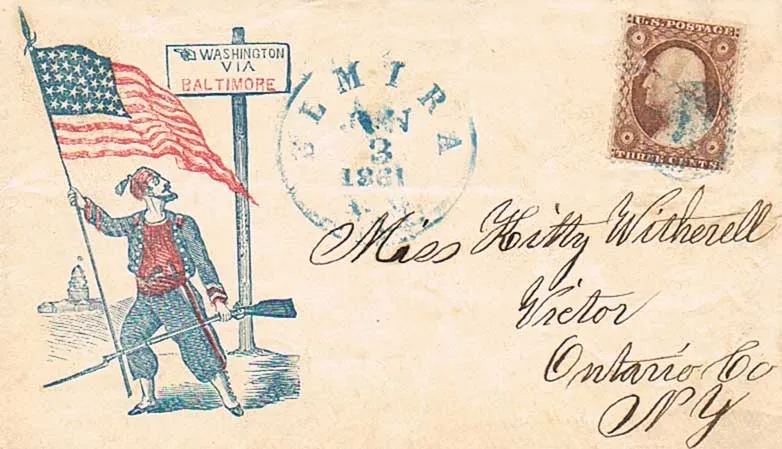 WASHINGTON
VIA
BALTIMORE
ELMIRA
3
1861
U.S. POSTAGE
THREE CENTS
Miss Kitty Witherell
Victor
Ontario Co
NY